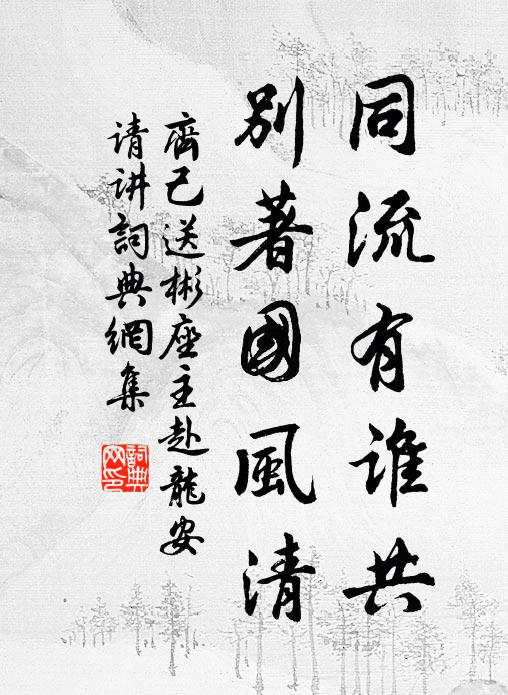 同流有谁共
别著國風清
齊己送彬座主赴龍安
请讲詞典網集
詞典网印